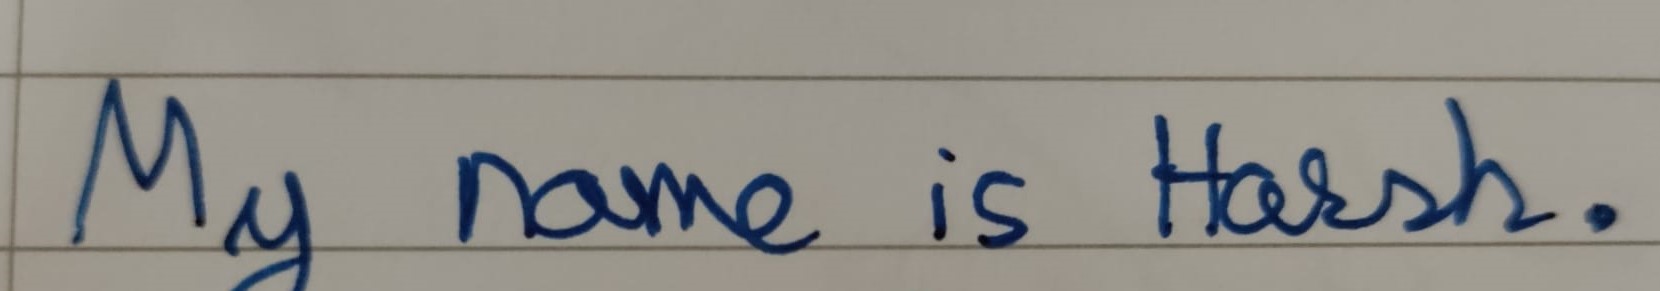 My name is Harsh.